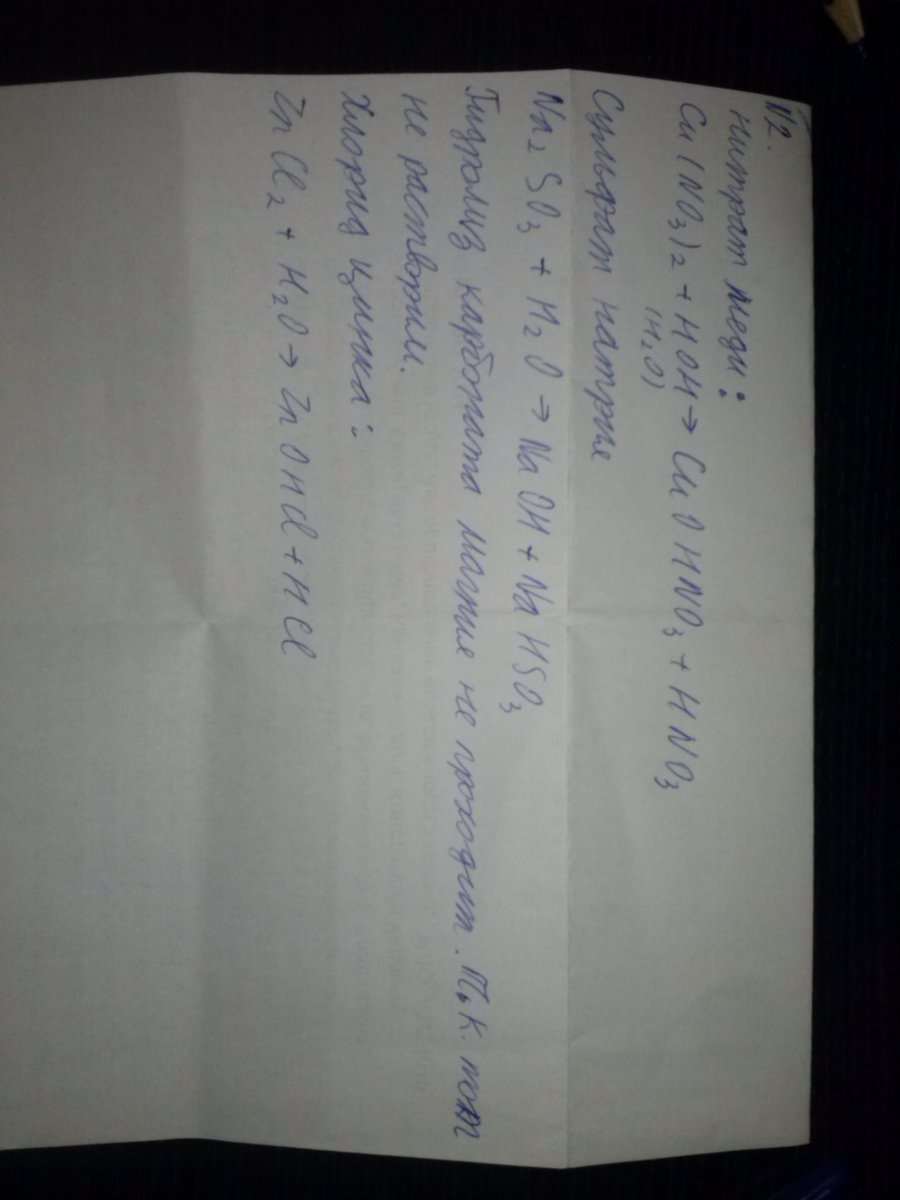 N2.
Нитрат меди:
Cu(NO3)2 + HOH → CuOHNO3 + HNO3
(H2O)
Сульфат натрия
Na2SO3 + H2O → NaOH + NaHSO3
Гидролиз карбоната магния не проходит. Т.к. тот
не растворим.
Хлорид цинка:
ZnCl2 + H2O → ZnOHCl + HCl